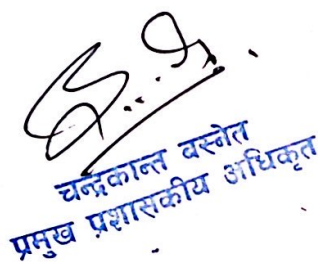 चन्द्रकान्त वस्नेत
प्रमुख प्रशासकीय अधिकृत